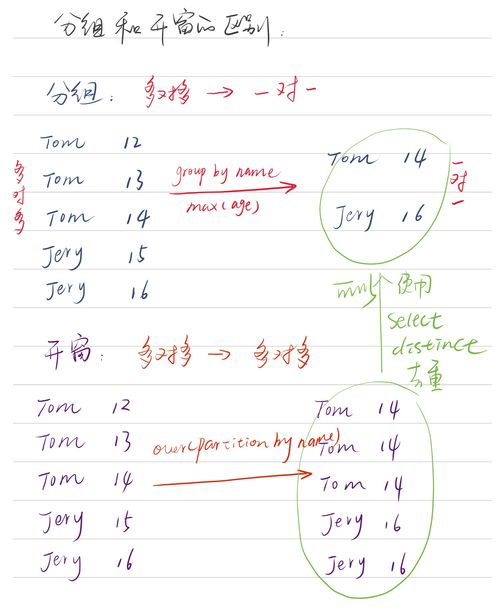 分组和开窗的区别:
分组: 多对多 → 一对一
多对多
Tom 12
Tom 13
Tom 14
Jery 15
Jery 16
group by name
max(age)
Tom 14
Jery 16
一对一
使用
select
distinct
去重
开窗: 多对多 → 多对多
Tom 12
Tom 13
Tom 14
Jery 15
Jery 16
over(partition by name)
Tom 14
Tom 14
Tom 14
Jery 16
Jery 16